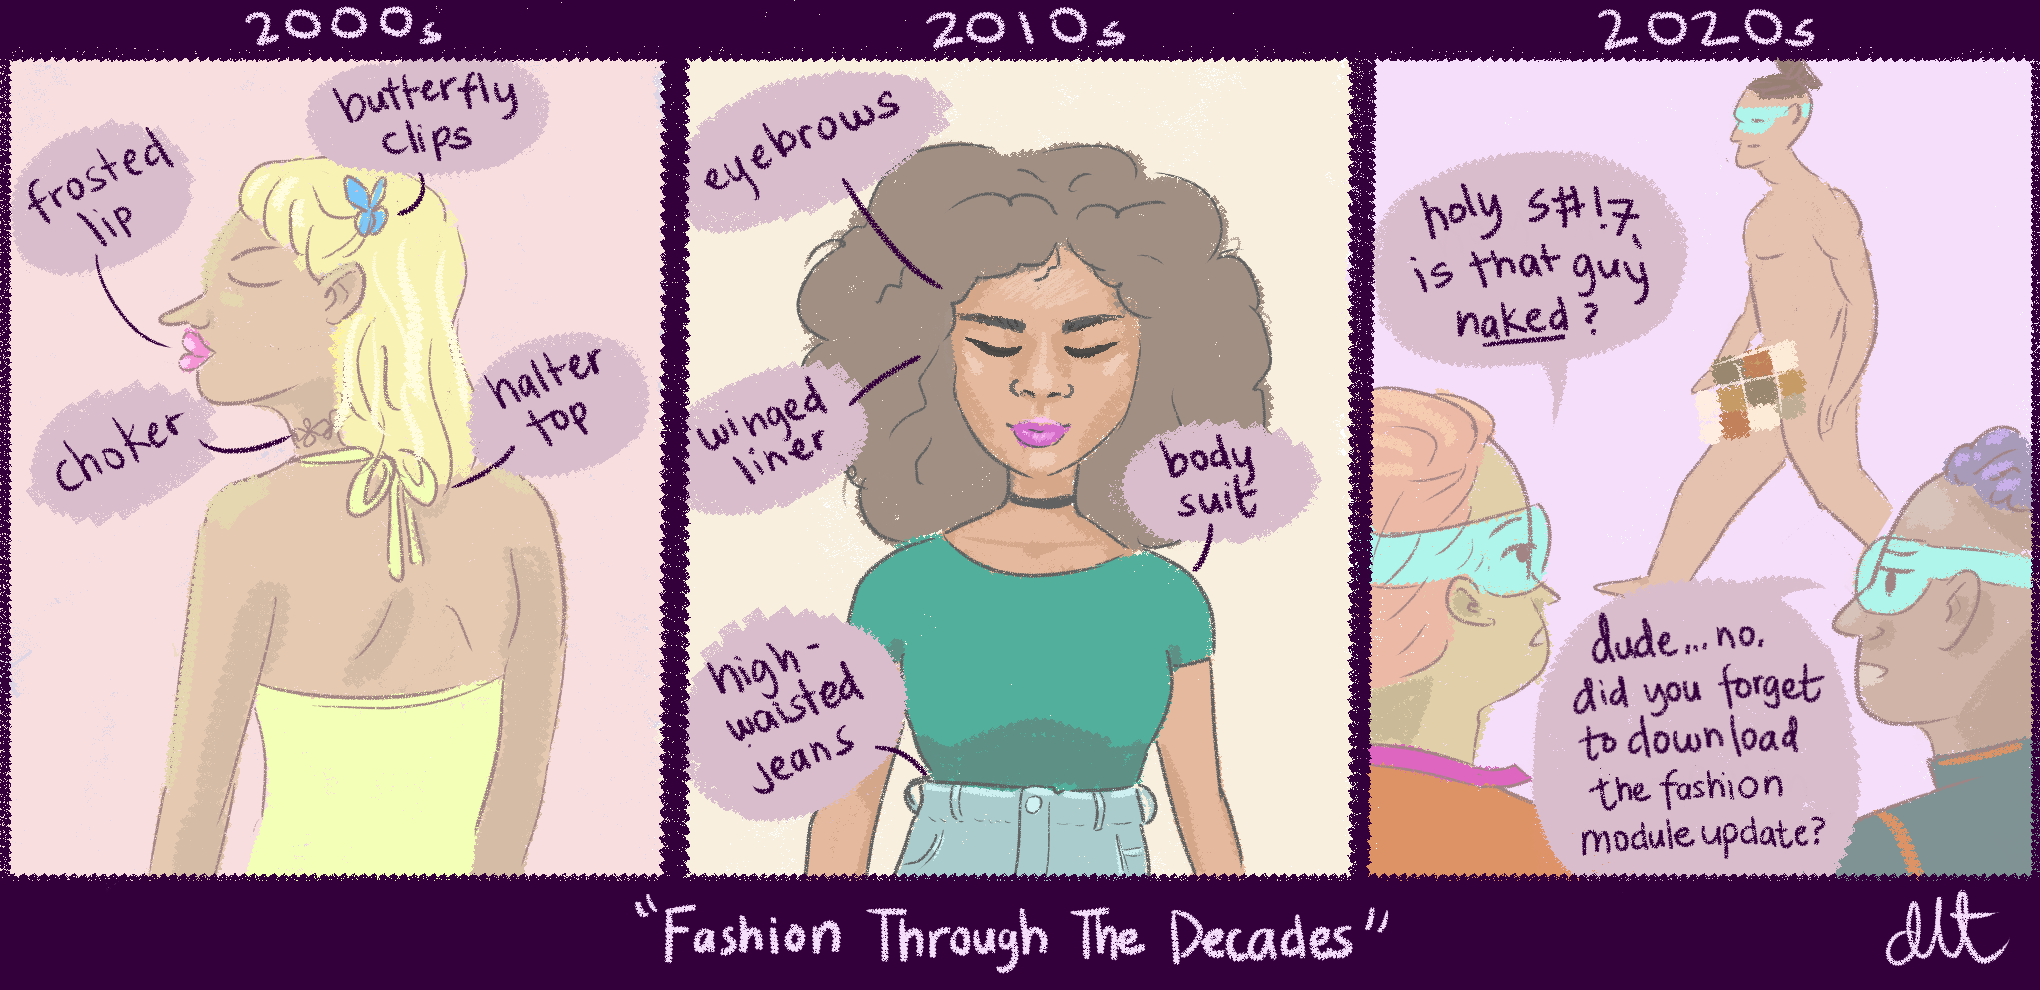 2000s
butterfly
clips
frosted
lip
choker
halter
top
2010s
eyebrows
winged
liner
body
suit
high-
waisted
jeans
2020s
holy s#!7,
is that guy
naked?
dude...no.
did you forget
to download
the fashion
module update?
"Fashion Through The Decades"
dlt